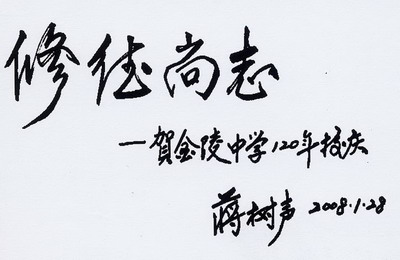 修德尚志
—贺金陵中学120年校庆
蒋树声 2008.1.28